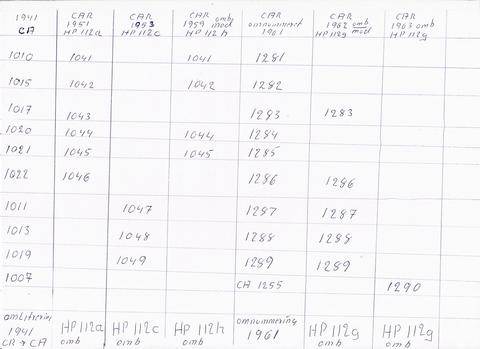 1941 CAR CAR CAR omb CAR CAR CAR
CA 1951 1953 1959 mod omnummerert 1962 omb mod 1963 omb
HP 112a HP 112c HP 112h 1961 HP 112g HP 112g
1010 1041 1041 1281
1015 1042 1042 1282
1017 1043 1283 1283
1020 1044 1044 1284
1021 1045 1045 1285
1022 1046 1286 1286
1011 1047 1287 1287
1013 1048 1288 1288
1019 1049 1289 1289
1007 CA 1255 1290
1941 HP 112a HP 112c HP 112h omnummering HP 112g HP 112g
CR → CA omb omb omb 1961 omb omb